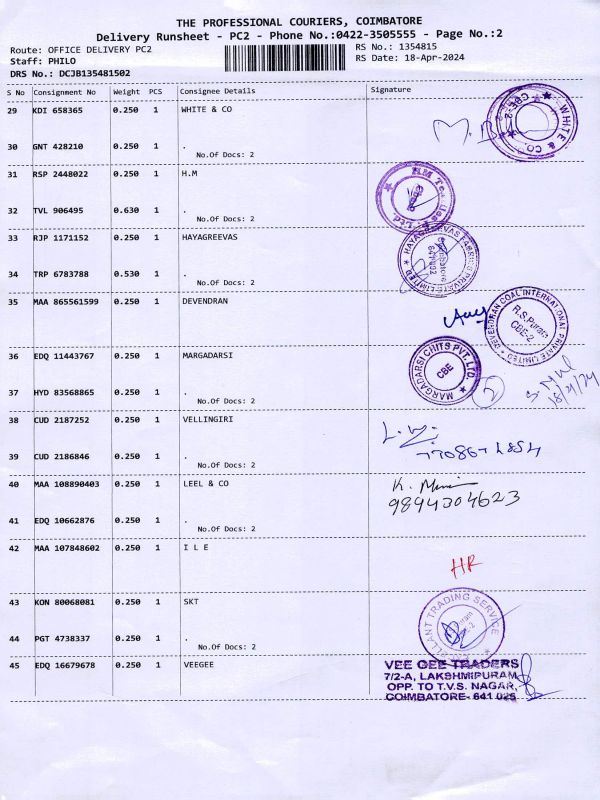 THE PROFESSIONAL COURIERS, COIMBATORE
Delivery Runsheet - PC2 - Phone No.:0422-3505555 - Page No.:2
Route: OFFICE DELIVERY PC2 RS No.: 1354815
Staff: PHILO RS Date: 18-Apr-2024
DRS No.: DCJB135481502
S No Consignment No Weight PCS Consignee Details Signature
29 KDI 658365 0.250 1 WHITE & CO
WHITE & CO. CBE-2
30 GNT 428210 0.250 1 .
No.Of Docs: 2
31 RSP 2448022 0.250 1 H.M
32 TVL 906495 0.630 1 .
No.Of Docs: 2
33 RJP 1171152 0.250 1 HAYAGREEVAS
HAYAGREEVAS FABRICS PRIVATE LIMITED
34 TRP 6783788 0.530 1 .
No.Of Docs: 2
35 MAA 865561599 0.250 1 DEVENDRAN
DEVENDRAN COAL INTERNATIONAL PRIVATE LIMITED
R.S.Puram
CBE-2
36 EDQ 11443767 0.250 1 MARGADARSI
MARGADARSI CHITS PVT. LTD.
CBE
2
18/4/24
37 HYD 83568865 0.250 1 .
No.Of Docs: 2
38 CUD 2187252 0.250 1 VELLINGIRI
39 CUD 2186846 0.250 1 .
No.Of Docs: 2
40 MAA 108890403 0.250 1 LEEL & CO
9894304623
41 EDQ 10662876 0.250 1 .
No.Of Docs: 2
42 MAA 107848602 0.250 1 I L E
HR
43 KON 80068081 0.250 1 SKT
TRADING SERVICE
44 PGT 4738337 0.250 1 .
No.Of Docs: 2
45 EDQ 16679678 0.250 1 VEEGEE
VEE GEE TRADERS
7/2-A, LAKSHMIPURAM,
OPP. TO T.V.S. NAGAR,
COIMBATORE- 641 025